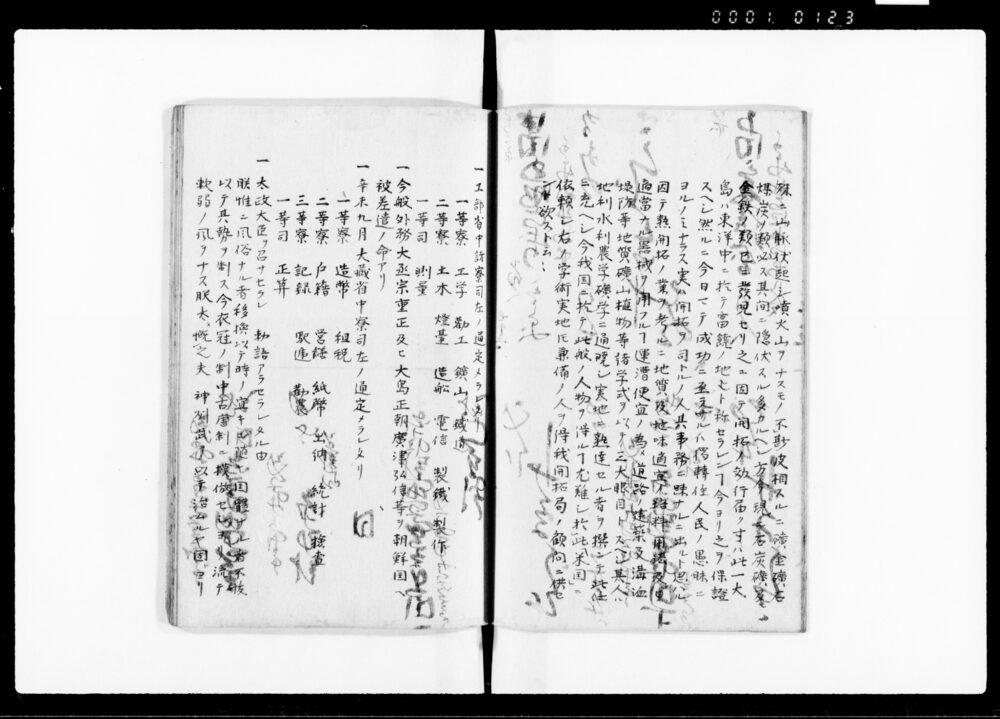 0001 0123
殊ニ山脈伏起シ噴火山ヲナスモノ不尠波相スルニ礦金礦石
煤炭ノ類以其間ニ隠伏スル多カルヘシ方今現ニ石炭礦
金鉄ノ類已ニ発見セリ之ニ因テ開拓ノ効行届クオハ此一大
島ハ東洋中ニ於テ富饒ノ地ト称セラレン丁今ヨリ之ヲ保證
スヘシ然ルニ今日マテ成功ニ至ラサルハ移轉住人民ノ愚昧ニ
ヨルノミナラス実ハ開拓ヲ司トルノ人其事務ニ疎ナルニ出ル
因テ熟開拓ノ業ヲ考ルニ地質及地味適宜ノ
適當ナル器械ヲ用フル丁運漕便宜ノ為メ道路ノ建築及溝洫
堤防等地質礦山植物等諸学式ヲ以テ三大眼目トス其人ハ
地利水利農学礦学ニ通暁シ実地ニ熟達セル者ヲ撰ンテ此任
ニ充ヘシ今我国ニ於テ此般ノ人物ヲ得ル丁尤難シ於此米国ニ
依頼シ右ノ学術実地圧兼備ノ人ヲ得我開拓局ノ顧問ニ供セ
ン丁ヲ欲スト云々
一工部省中諸寮司左ノ通定メラレ
一等寮 工学 勧工 鑛山 鐡道
二等寮 土木 燈臺 造船 電信 製鐡 製作
一等司 測量
一今般外務大丞宗重正及ヒ大島正朝廣津弘信等ヲ朝鮮国ヘ
被差遣ノ命アリ
一辛未九月大蔵省中寮司左ノ通定メラレタリ
一等寮 造幣 租税
二等寮 戸籍 営繕 紙幣 出納 統計 検査
三等寮 記録 駅逓 勧農
一等司 正算
一太政大臣ヲ召サセラレ 勅語アラセラレタル由
朕惟ニ風俗ナル者移換以テ時ノ宜キニ随ヒ国體ナル者不抜
以テ其勢ヲ制ス今衣冠ノ制中古唐制ニ模倣セシヨリ流テ
軟弱ノ風ヲナス朕太タ慨之夫 神州ノ武ヲ以テ治ムルヤ固ヨリ